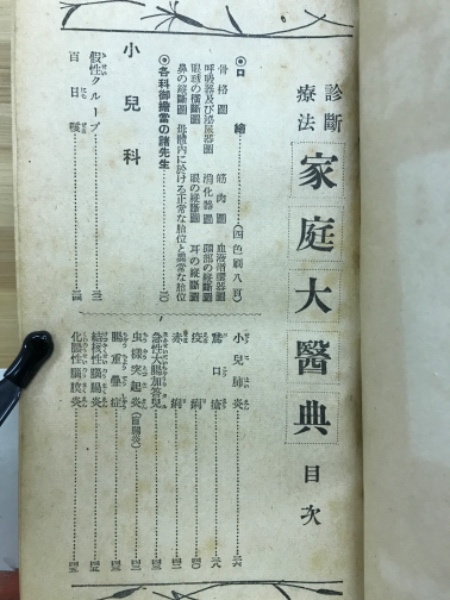 診斷
療法
家庭大醫典
目次
◎口繪(四色刷八頁)
骨格圖 筋肉圖 血液循環器圖
呼吸器及び泌尿器圖 消化器圖 頭部の縱斷圖
眼球の橫斷圖 眼の縱斷圖 耳の縱斷圖
鼻の縱斷圖 母體內に於ける正常な胎位と異常な胎位
◎各科御擔當の諸先生
小兒科
假性クループ
百日咳
小兒肺炎 三六
鵞口瘡 三八
疫痢 四〇
赤痢 四一
急性大腸加答兒
虫樣突起炎(盲腸炎) 四三
腸重疊症
結核性腦膜炎
化膿性腦膜炎